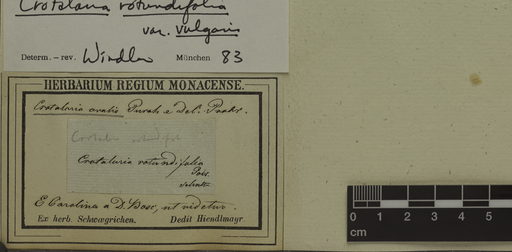 Crotalaria rotundifolia
var. vulgaris
Determ. – rev. Windler München 83
HERBARIUM REGIUM MONACENSE.
Crotalaria ovalis Pursh. e Del. Prodr.
Crotalaria rotundifolia
Poir.
E Carolina a D. Bosc, ut videtur.
Ex herb. Schwægrichen. Dedit Hiendlmayr.
0 1 2 3 4 5
cm